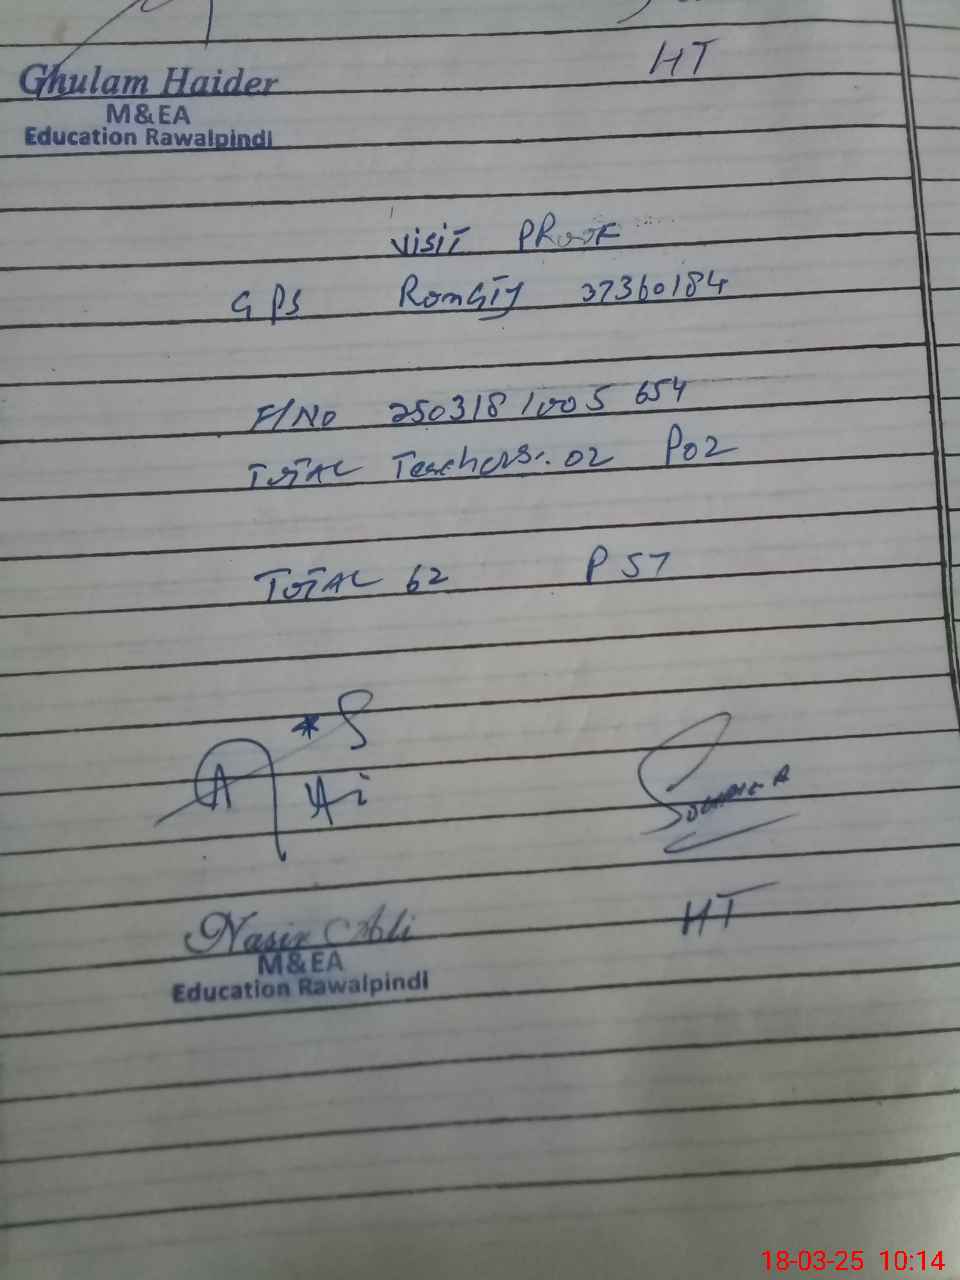 HT
Ghulam Haider
M&EA
Education Rawalpindi
Visit PRooF
GPS 37360184
F/No 2503181005654
TOTAL Teachers. 02 P02
TOTAL 62 P 57
Nasir Ali
M&EA
Education Rawalpindi
HT
18-03-25 10:14